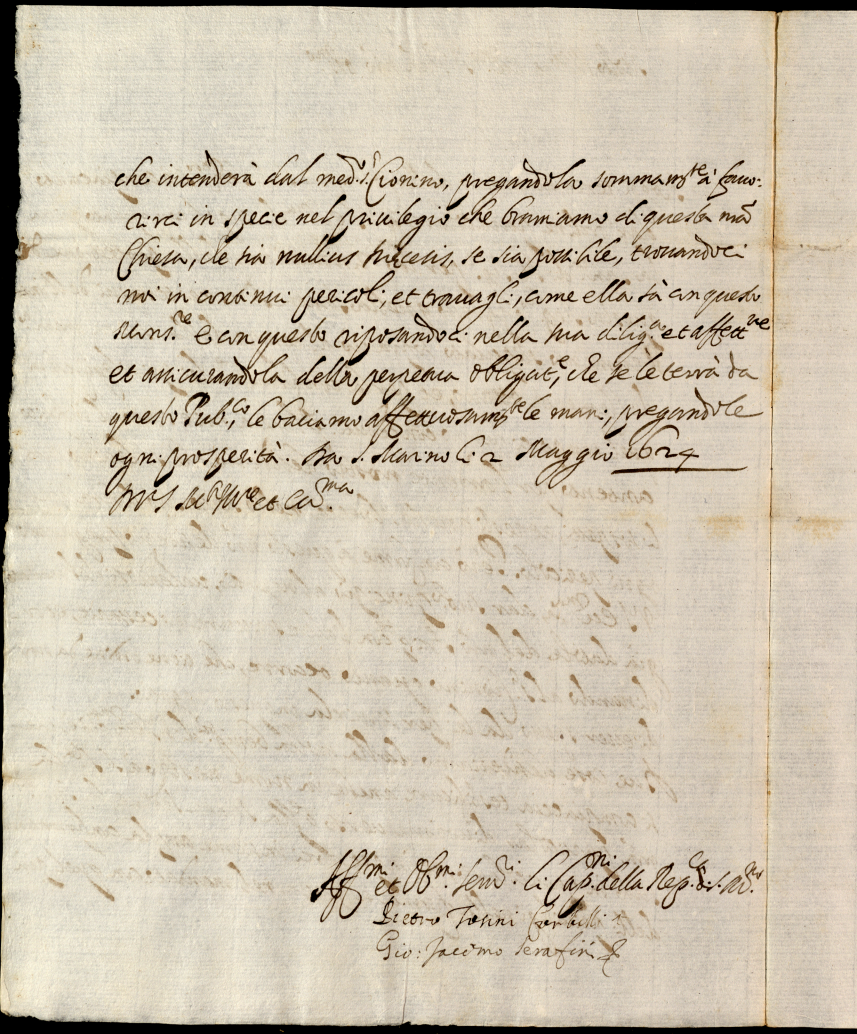 che intenderà dal med.º S.r Cionino, pregandola sommam.te à favo:
rirci in specie nel privilegio che bramiamo di questa nrã
Chiesa, che sia nullius Diecesis, se sia possibile, trovandoci
noi in continui pericoli, et travagli, come ella sà con questo
Mons.re E con questo riposandoci nella sua dilig.a et affett.ne
et assicurandola della perpetua obligat.e, che se le terrà da
questo Pub.co, le baciamo affettuosam.te le mani, pregandole
ogni prosperità. Da S. Marino li 2 Maggio 1624
Di V. S. M.to Ill.re et Ecc.ma
Aff.mi et Obl.mi Serv.ri li Cap.ni della Rep.ca di S. M.no
Pietro Tosini
Gio: Jacomo Serafini